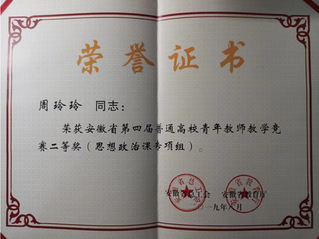 荣誉证书
周玲玲 同志：
荣获安徽省第四届普通高校青年教师教学竞
赛二等奖（思想政治课专项组）。
安徽省总工会 安徽省教育厅
一九年八月